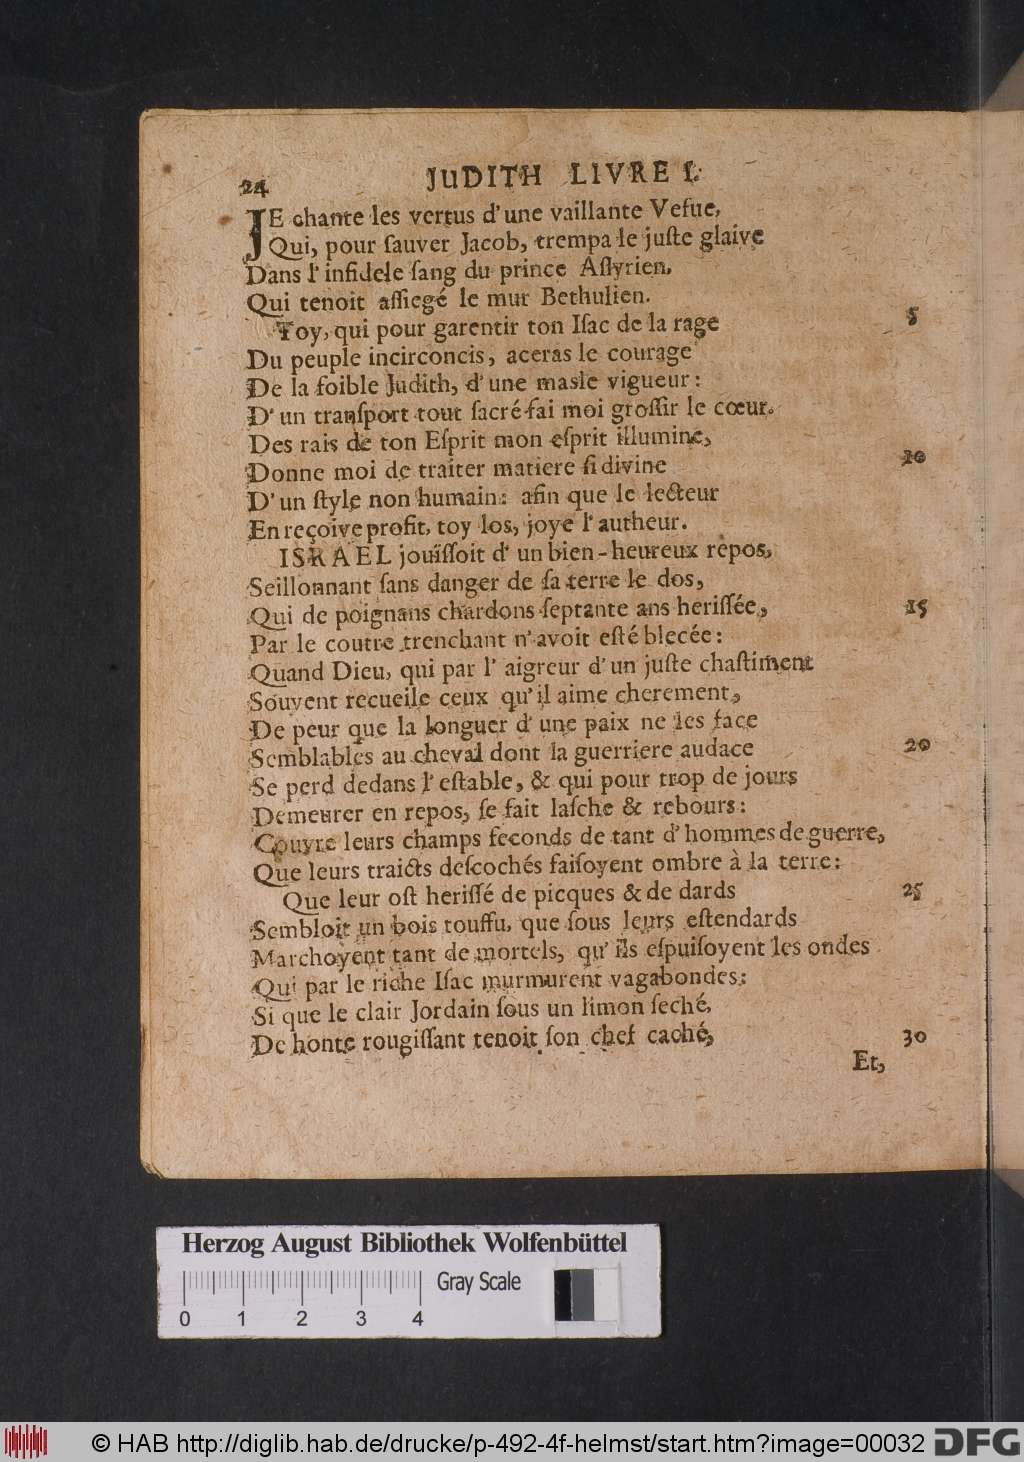 24 JUDITH LIVRE I.
JE chante les vertus d'une vaillante Vefue,
Qui, pour ſauver Jacob, trempa le juſte glaive
Dans l'infidele ſang du prince Aſſyrien,
Qui tenoit aſſiegé le mur Bethulien.
Toy, qui pour garentir ton Iſac de la rage 5
Du peuple incirconcis, aceras le courage
De la foible Judith, d'une masle vigueur:
D'un tranſport tout ſacré fai moi groſſir le cœur.
Des rais de ton Eſprit mon eſprit illumine,
Donne moi de traiter matiere ſi divine 10
D'un ſtyle non humain: afin que le lecteur
En reçoive profit, toy los, joye l'autheur.
ISRAEL jouïſſoit d'un bien-heureux repos,
Seillonnant ſans danger de ſa terre le dos,
Qui de poignans chardons ſeptante ans heriſſée, 15
Par le coutre trenchant n'avoit eſté blecée:
Quand Dieu, qui par l'aigreur d'un juſte chaſtiment
Souvent recueile ceux qu'il aime cherement,
De peur que la longuer d'une paix ne les face
Semblables au cheval dont la guerriere audace 20
Se perd dedans l'eſtable, & qui pour trop de jours
Demeurer en repos, ſe fait laſche & rebours:
Couvre leurs champs feconds de tant d'hommes de guerre,
Que leurs traicts deſcochés faiſoyent ombre à la terre:
Que leur oſt heriſſé de picques & de dards 25
Sembloit un bois touffu, que ſous leurs eſtendards
Marchoyent tant de mortels, qu'ils eſpuiſoyent les ondes
Qui par le riche Iſac murmurent vagabondes:
Si que le clair Jordain ſous un limon ſeché,
De honte rougiſſant tenoit ſon chef caché, 30
Et,
Herzog August Bibliothek Wolfenbüttel
Gray Scale
0 1 2 3 4
© HAB http://diglib.hab.de/drucke/p-492-4f-helmst/start.htm?image=00032 DFG